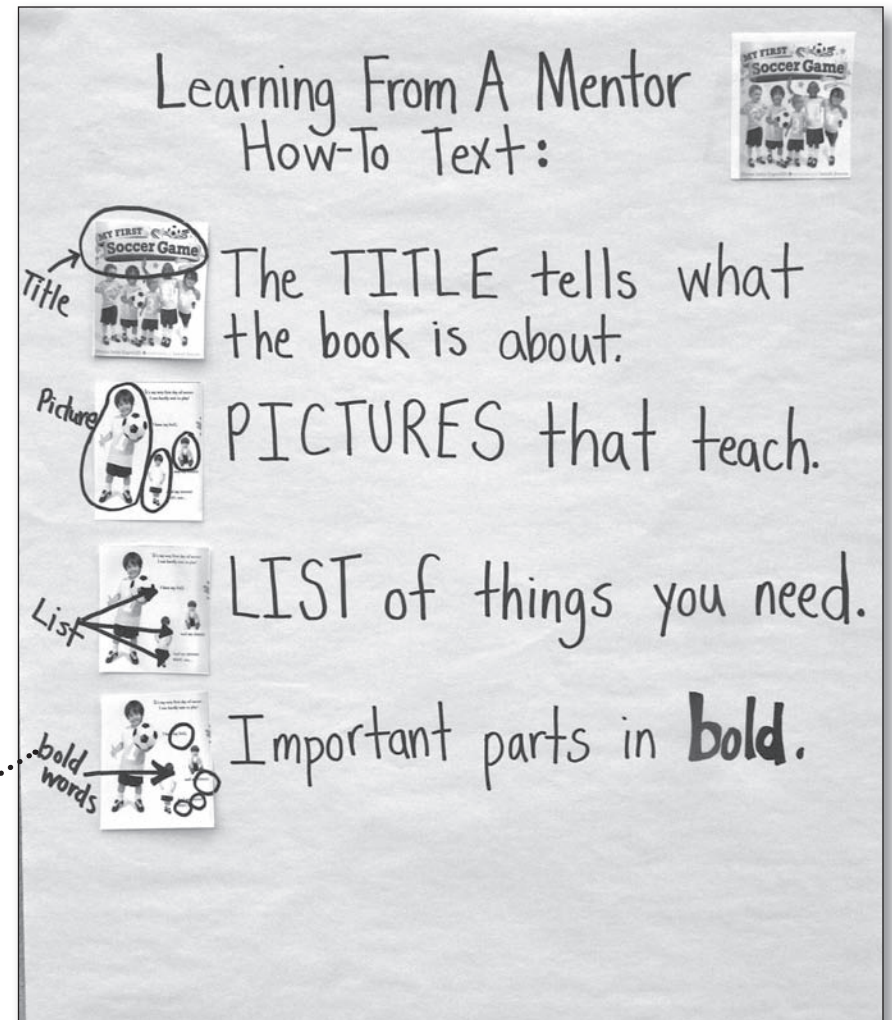 Learning From A Mentor
How-To Text:
MY FIRST
Soccer Game
MY FIRST
Soccer Game
Title
The TITLE tells what
the book is about.
Picture
PICTURES that teach.
List
LIST of things you need.
bold
words
Important parts in bold.